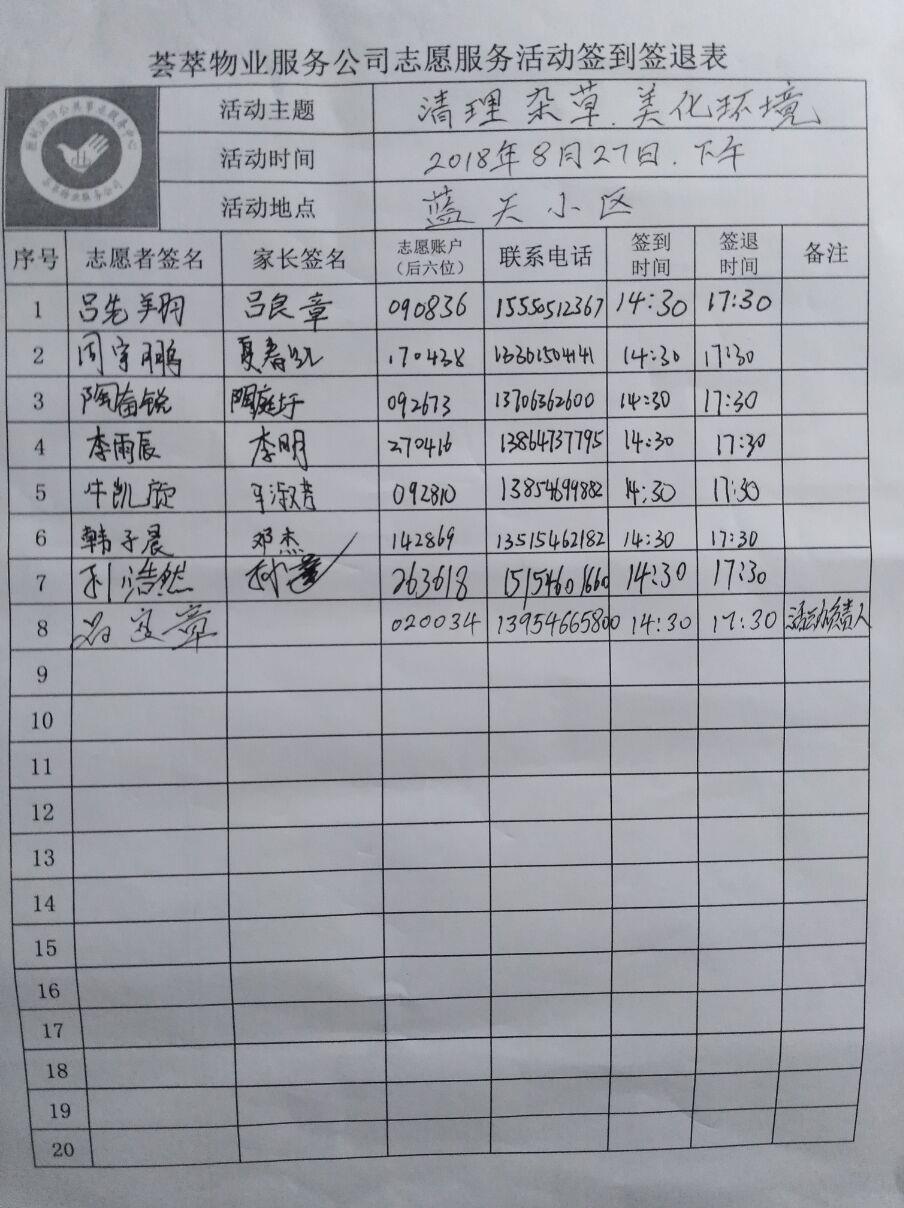 荟萃物业服务公司志愿服务活动签到签退表
活动主题 清理杂草.美化环境
活动时间 2018年8月27日.下午
活动地点 蓝天小区
序号 志愿者签名 家长签名 志愿账户（后六位） 联系电话 签到时间 签退时间 备注
1 吕先美玥 吕良章 090836 15550512367 14:30 17:30
2 周宇鹏 170438 13361504141 14:30 17:30
3 陶奋锐 092673 13706362600 14:30 17:30
4 李雨辰 李明 270416 13864737795 14:30 17:30
5 牛凯欣 092810 13854699882 14:30 17:30
6 韩子晨 邓杰 142869 13515462182 14:30 17:30
7 浩然 263618 15154601660 14:30 17:30
8 020034 13954665800 14:30 17:30 活动负责人
9
10
11
12
13
14
15
16
17
18
19
20